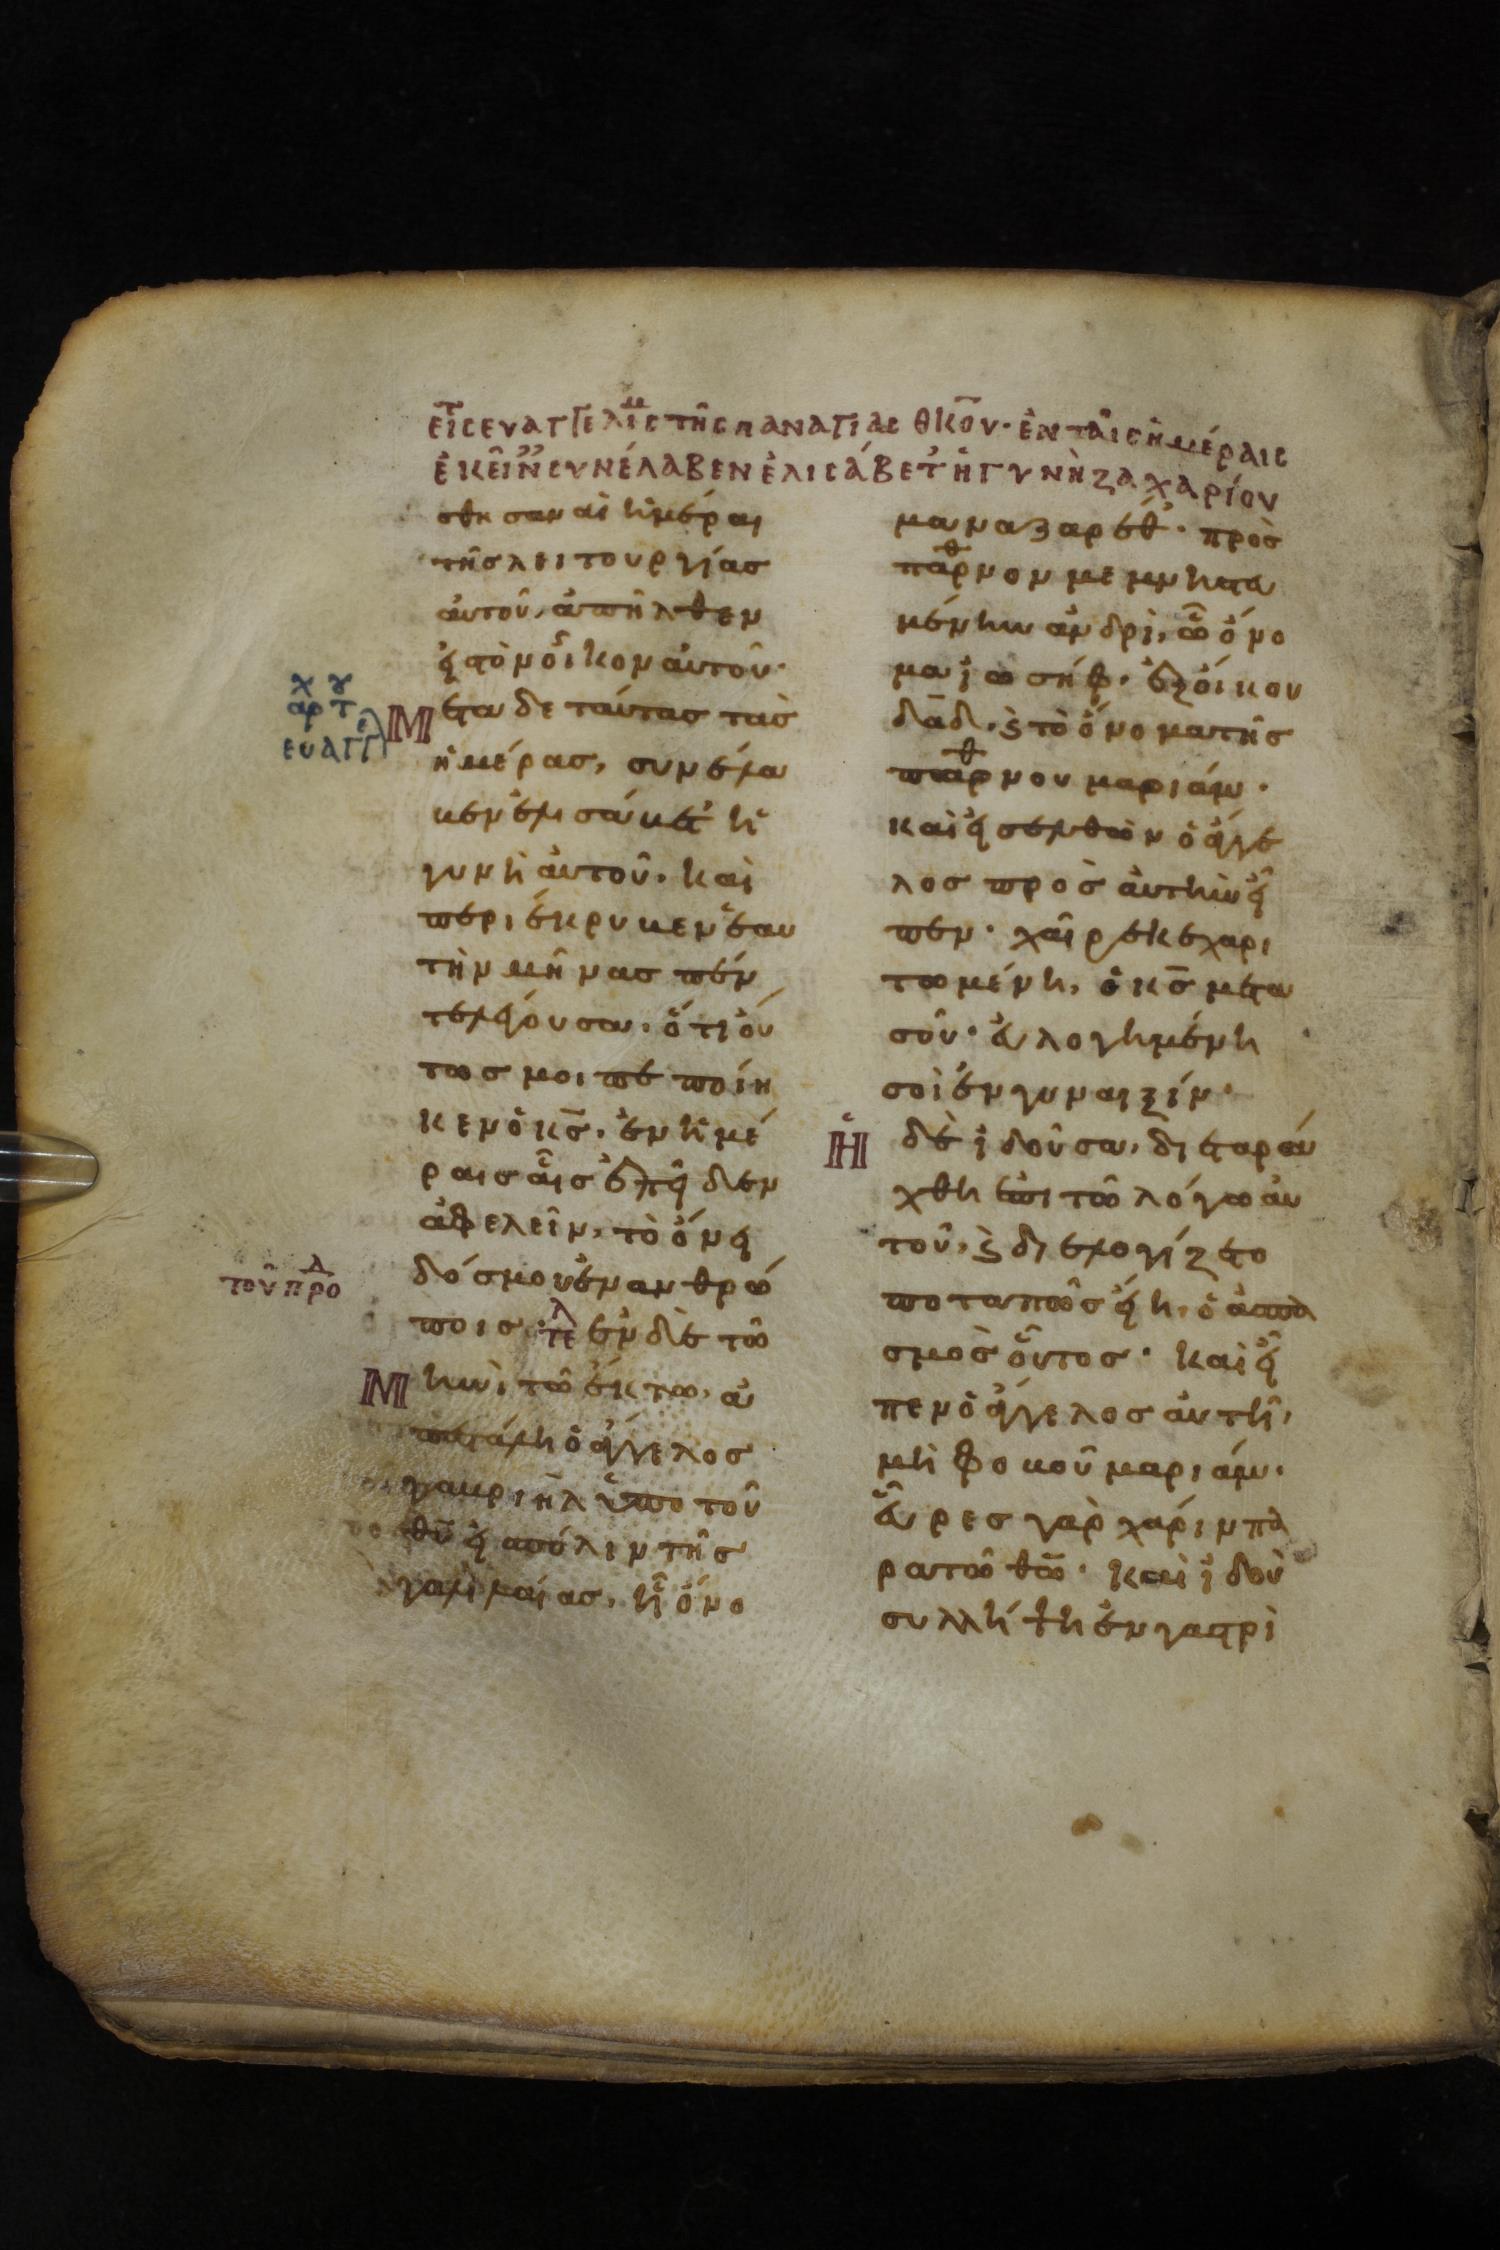 εἰς εὐαγγελις τῆς παναγίας θκου· ἐν ταῖς ἡμέραις
ἐκεῖν συνέλαβεν ἐλισάβετ ἡ γυνὴ ζαχαρίου
σθησαν αἱ ἡμέραι
τῆς λειτουργίας
αὐτοῦ, ἀπῆλθεν
εἰς τὸν οἶκον αὐτοῦ·
χ γ
αρ τ
ευαγγελ
Μετα δε ταύτας τὰς
ἡμέρας, συνέλα
βεν ἐλισάβετ ἡ
γυνὴ αὐτοῦ. καὶ
περιέκρυβεν ἑαυ
τὴν μῆνας πέν
τε λέγουσα. ὅτι οὕ
τως μοι πεποίη
κεν ὁ κς. ἐν ἡμέ
ραις αἷς ἐπεῖδεν
ἀφελεῖν, τὸ ὄνει
δός μου ἐν ἀνθρώ
ποις· τελ ἐν δὲ τῶ
τοῦ προδ
Μηνὶ τῶ ἕκτω, ἀ
πεστάλη ὁ ἄγγελος
γαβριὴλ ὑπὸ τοῦ
θυ εἰς πόλιν τῆς
γαλιλαίας, ἧ ὄνο
μα ναζαρέθ· πρὸς
παρθνον μεμνηστευ
μένην ἀνδρὶ, ὧ ὄνο
μα ἰωσήφ. ἐξ οἴκου
δαδ. καὶ τὸ ὄνομα τῆς
παρθνου μαριάμ·
καὶ εἰσελθὼν ὁ ἄγγε
λος πρὸς αὐτὴν εἶ
πεν· χαῖρε κεχαρι
τωμένη, ὁ κς μετα
σοῦ· εὐλογημένη
σοὶ ἐν γυναιξίν·
Ἡ δὲ ἰδοῦσα, διεταρά
χθη ἐπι τῶ λόγω αὐ
τοῦ, καὶ διελογίζετο
ποταπῶς εἴη, ὁ ἀσπα
σμὸς οὗτος· καὶ εἶ
πεν ὁ ἄγγελος αὐτῆ,
μὴ φοβοῦ μαριάμ·
εὗρες γὰρ χάριν πα
ρα τῶ θω· καὶ ἰδοὺ
συλλήψη ἐν γαστρὶ